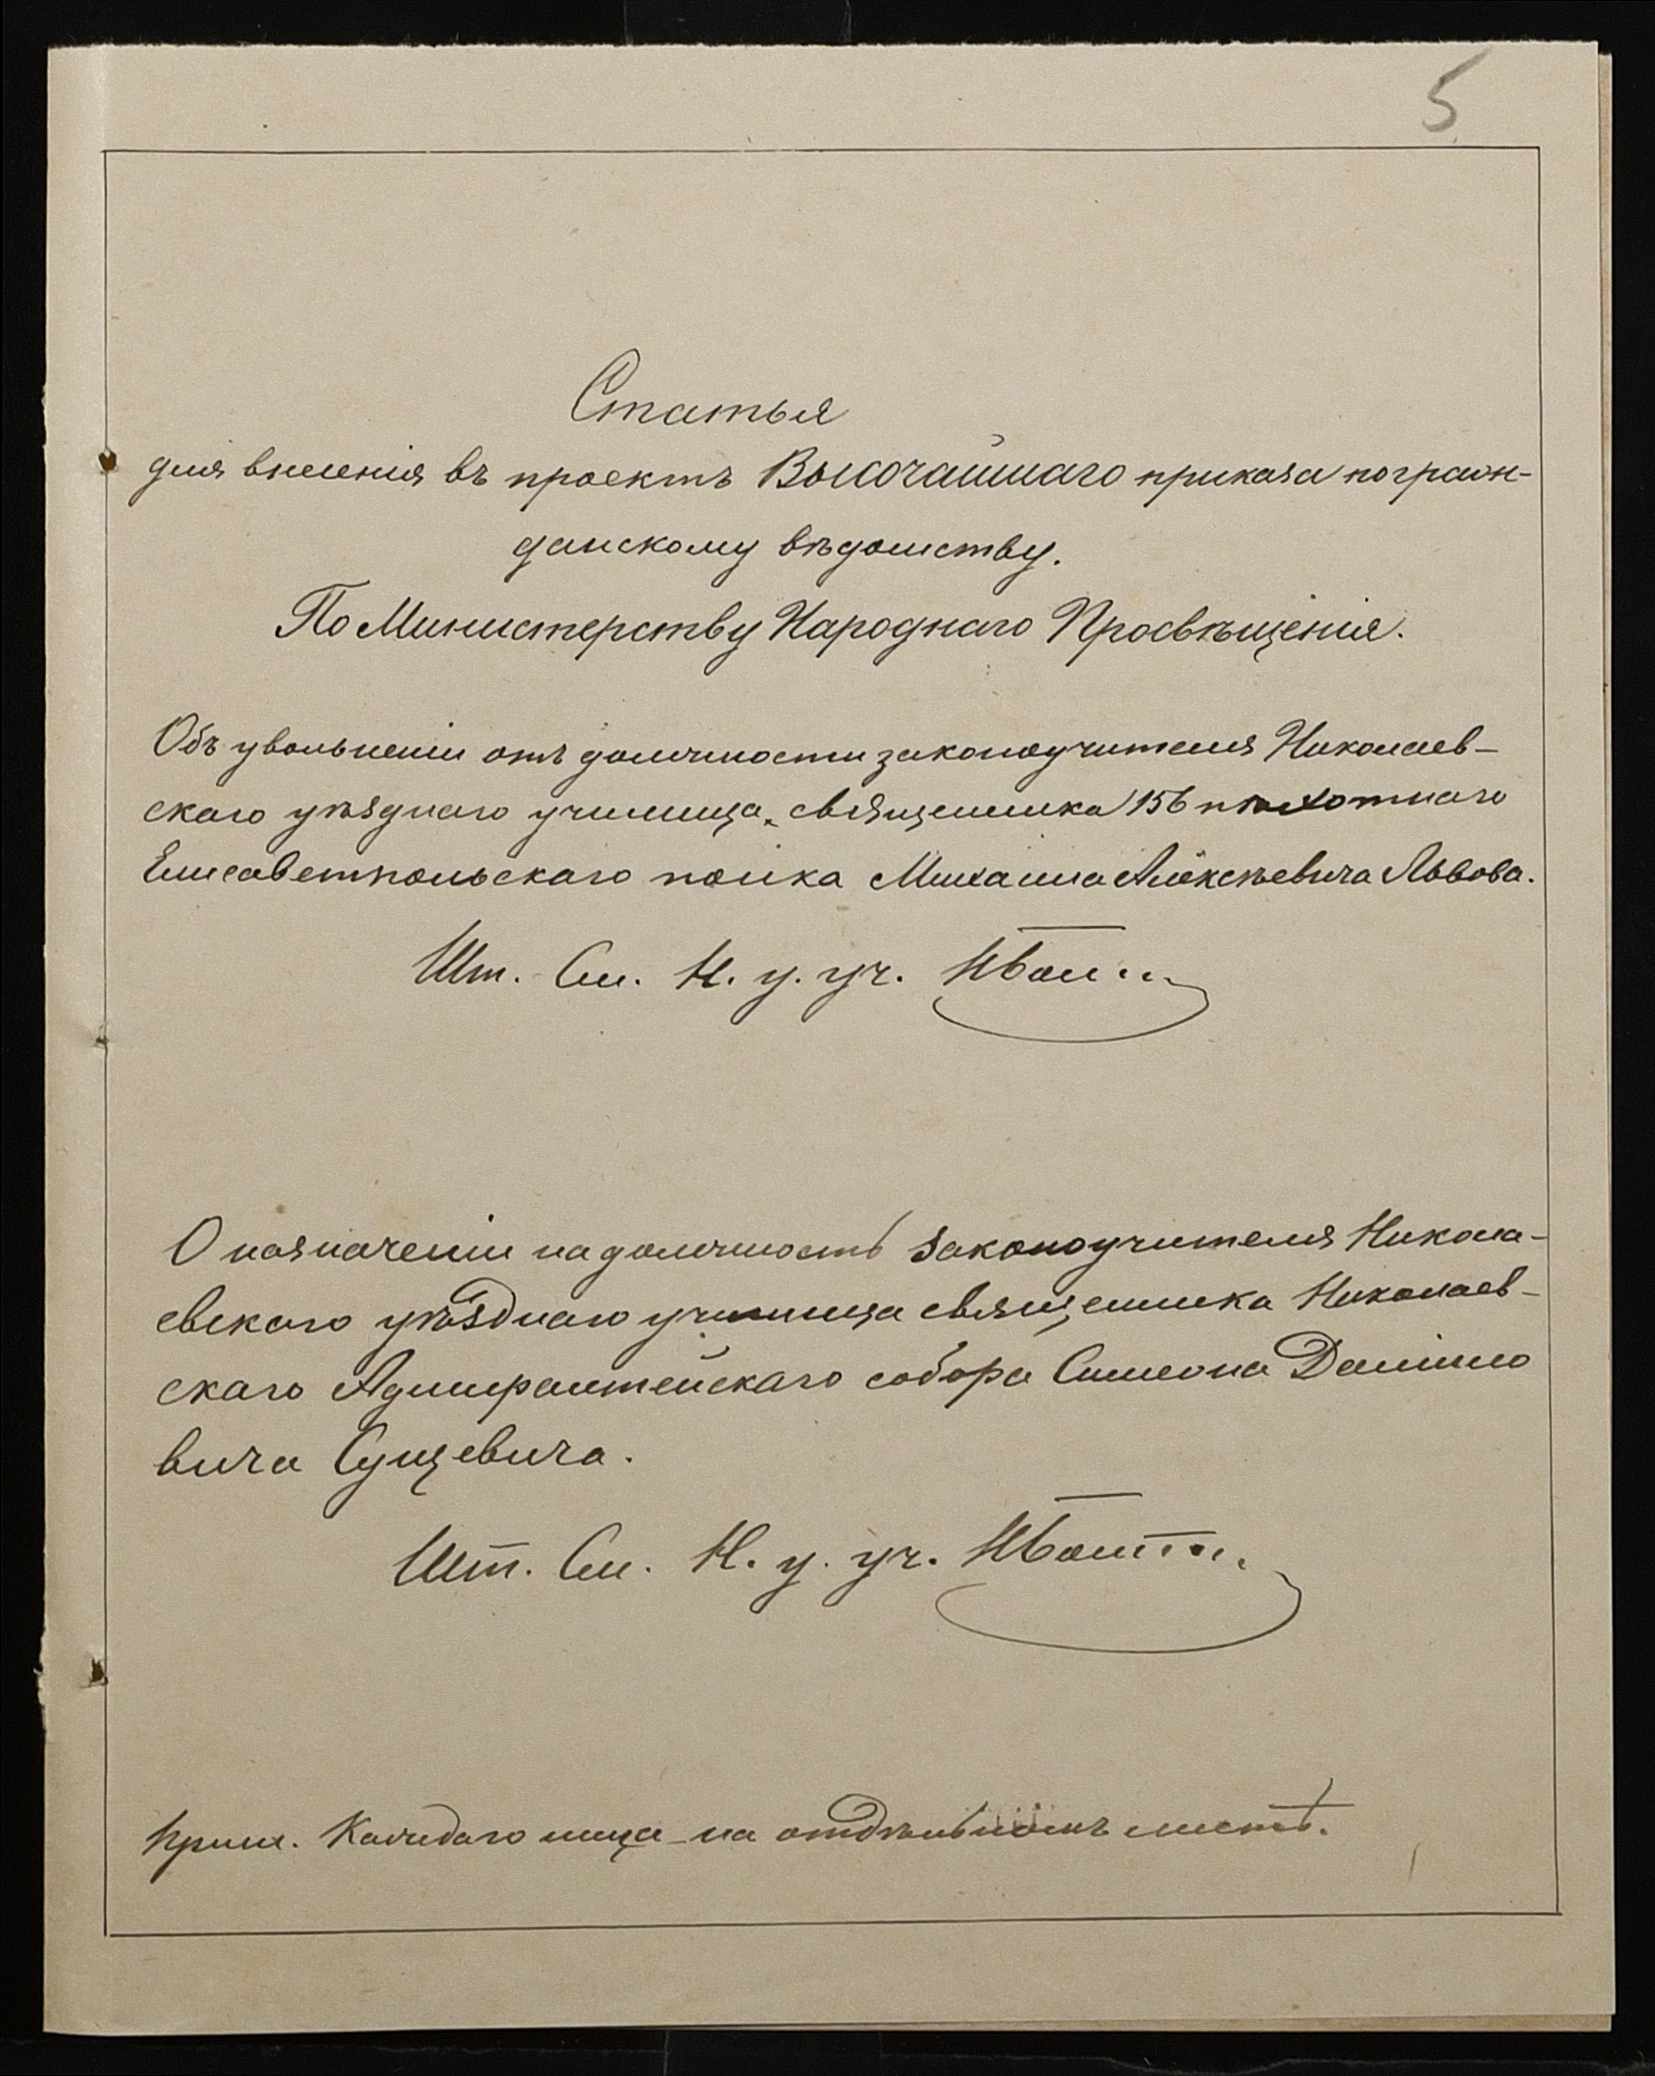 5
Статья
для внесенія въ проектъ Высочайшаго приказа по граж-
данскому вѣдомству.
По Министерству Народнаго Просвѣщенія.
Объ увольненіи отъ должности законоучителя Николаев-
скаго уѣзднаго училища, священника 156 пѣхотнаго
Елисаветпольскаго полка Михаила Алексѣевича Львова.
Шт. См. Н. у. уч.
О назначеніи на должность законоучителя Никола-
евскаго уѣзднаго училища священника Николаев-
скаго Адмиралтейскаго собора Симеона Данило
вича Сущевича.
Шт. См. Н. у. уч.
Прим. Каждаго лица на отдѣльномъ листѣ.